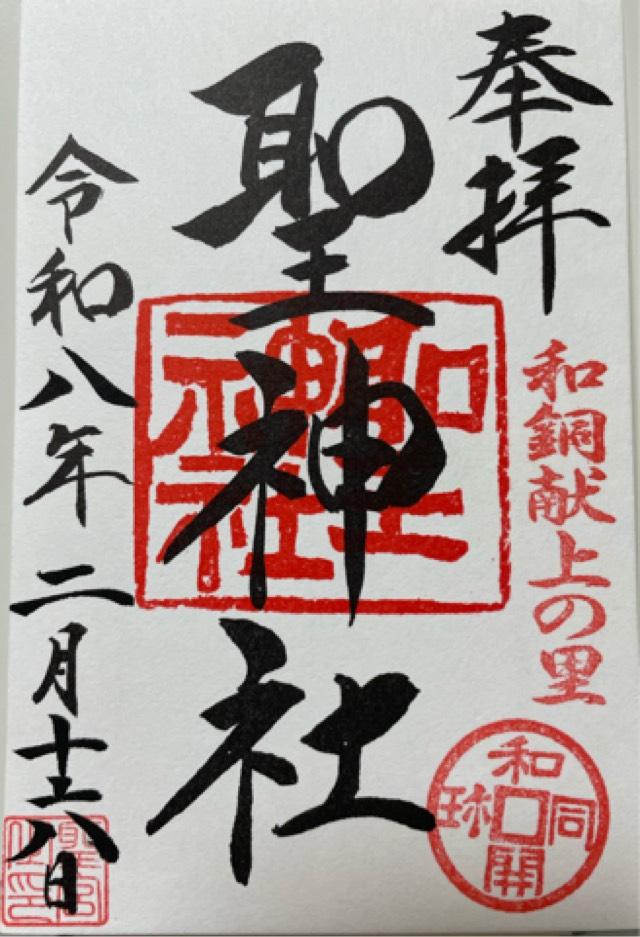 奉拝
和銅献上の里
和同開珎
聖神社
聖神社
令和八年二月十六日